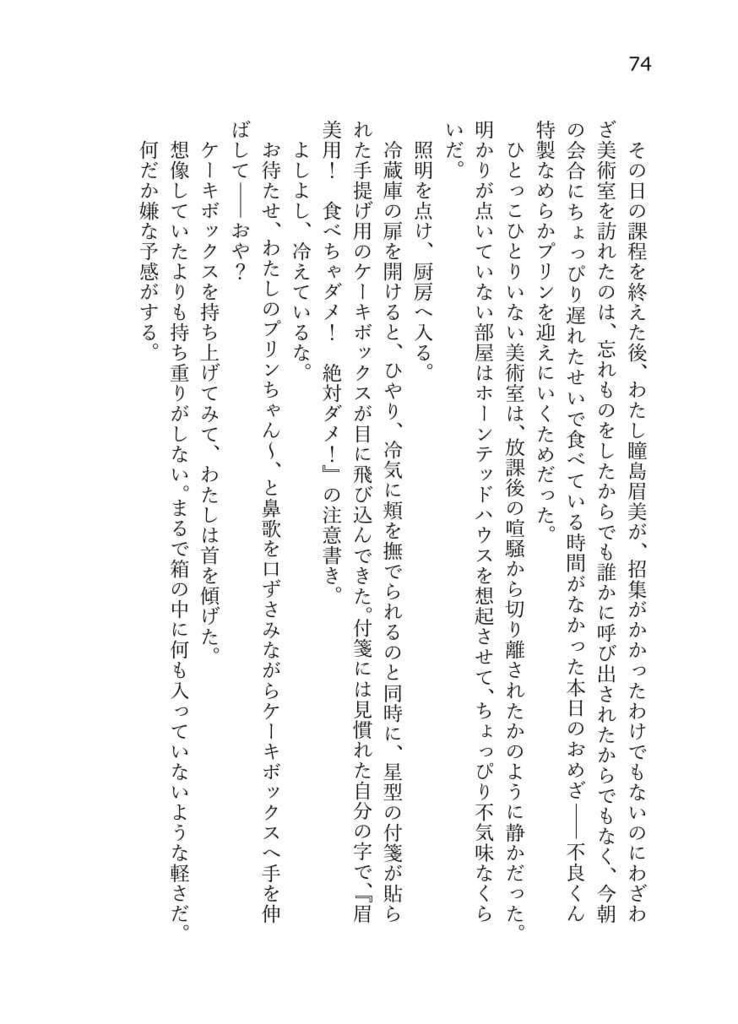 74
その日の課程を終えた後、わたし瞳島眉美が、招集がかかったわけでもないのにわざわ
ざ美術室を訪れたのは、忘れものをしたからでも誰かに呼び出されたからでもなく、今朝
の会合にちょっぴり遅れたせいで食べている時間がなかった本日のおめざ――不良くん
特製なめらかプリンを迎えにいくためだった。
ひとっこひとりいない美術室は、放課後の喧騒から切り離されたかのように静かだった。
明かりが点いていない部屋はホーンテッドハウスを想起させて、ちょっぴり不気味なくら
いだ。
照明を点け、厨房へ入る。
冷蔵庫の扉を開けると、ひやり、冷気に頬を撫でられるのと同時に、星型の付箋が貼ら
れた手提げ用のケーキボックスが目に飛び込んできた。付箋には見慣れた自分の字で、『眉
美用！　食べちゃダメ！　絶対ダメ！』の注意書き。
よしよし、冷えているな。
お待たせ、わたしのプリンちゃん〜、と鼻歌を口ずさみながらケーキボックスへ手を伸
ばして――おや？
ケーキボックスを持ち上げてみて、わたしは首を傾げた。
想像していたよりも持ち重りがしない。まるで箱の中に何も入っていないような軽さだ。
何だか嫌な予感がする。